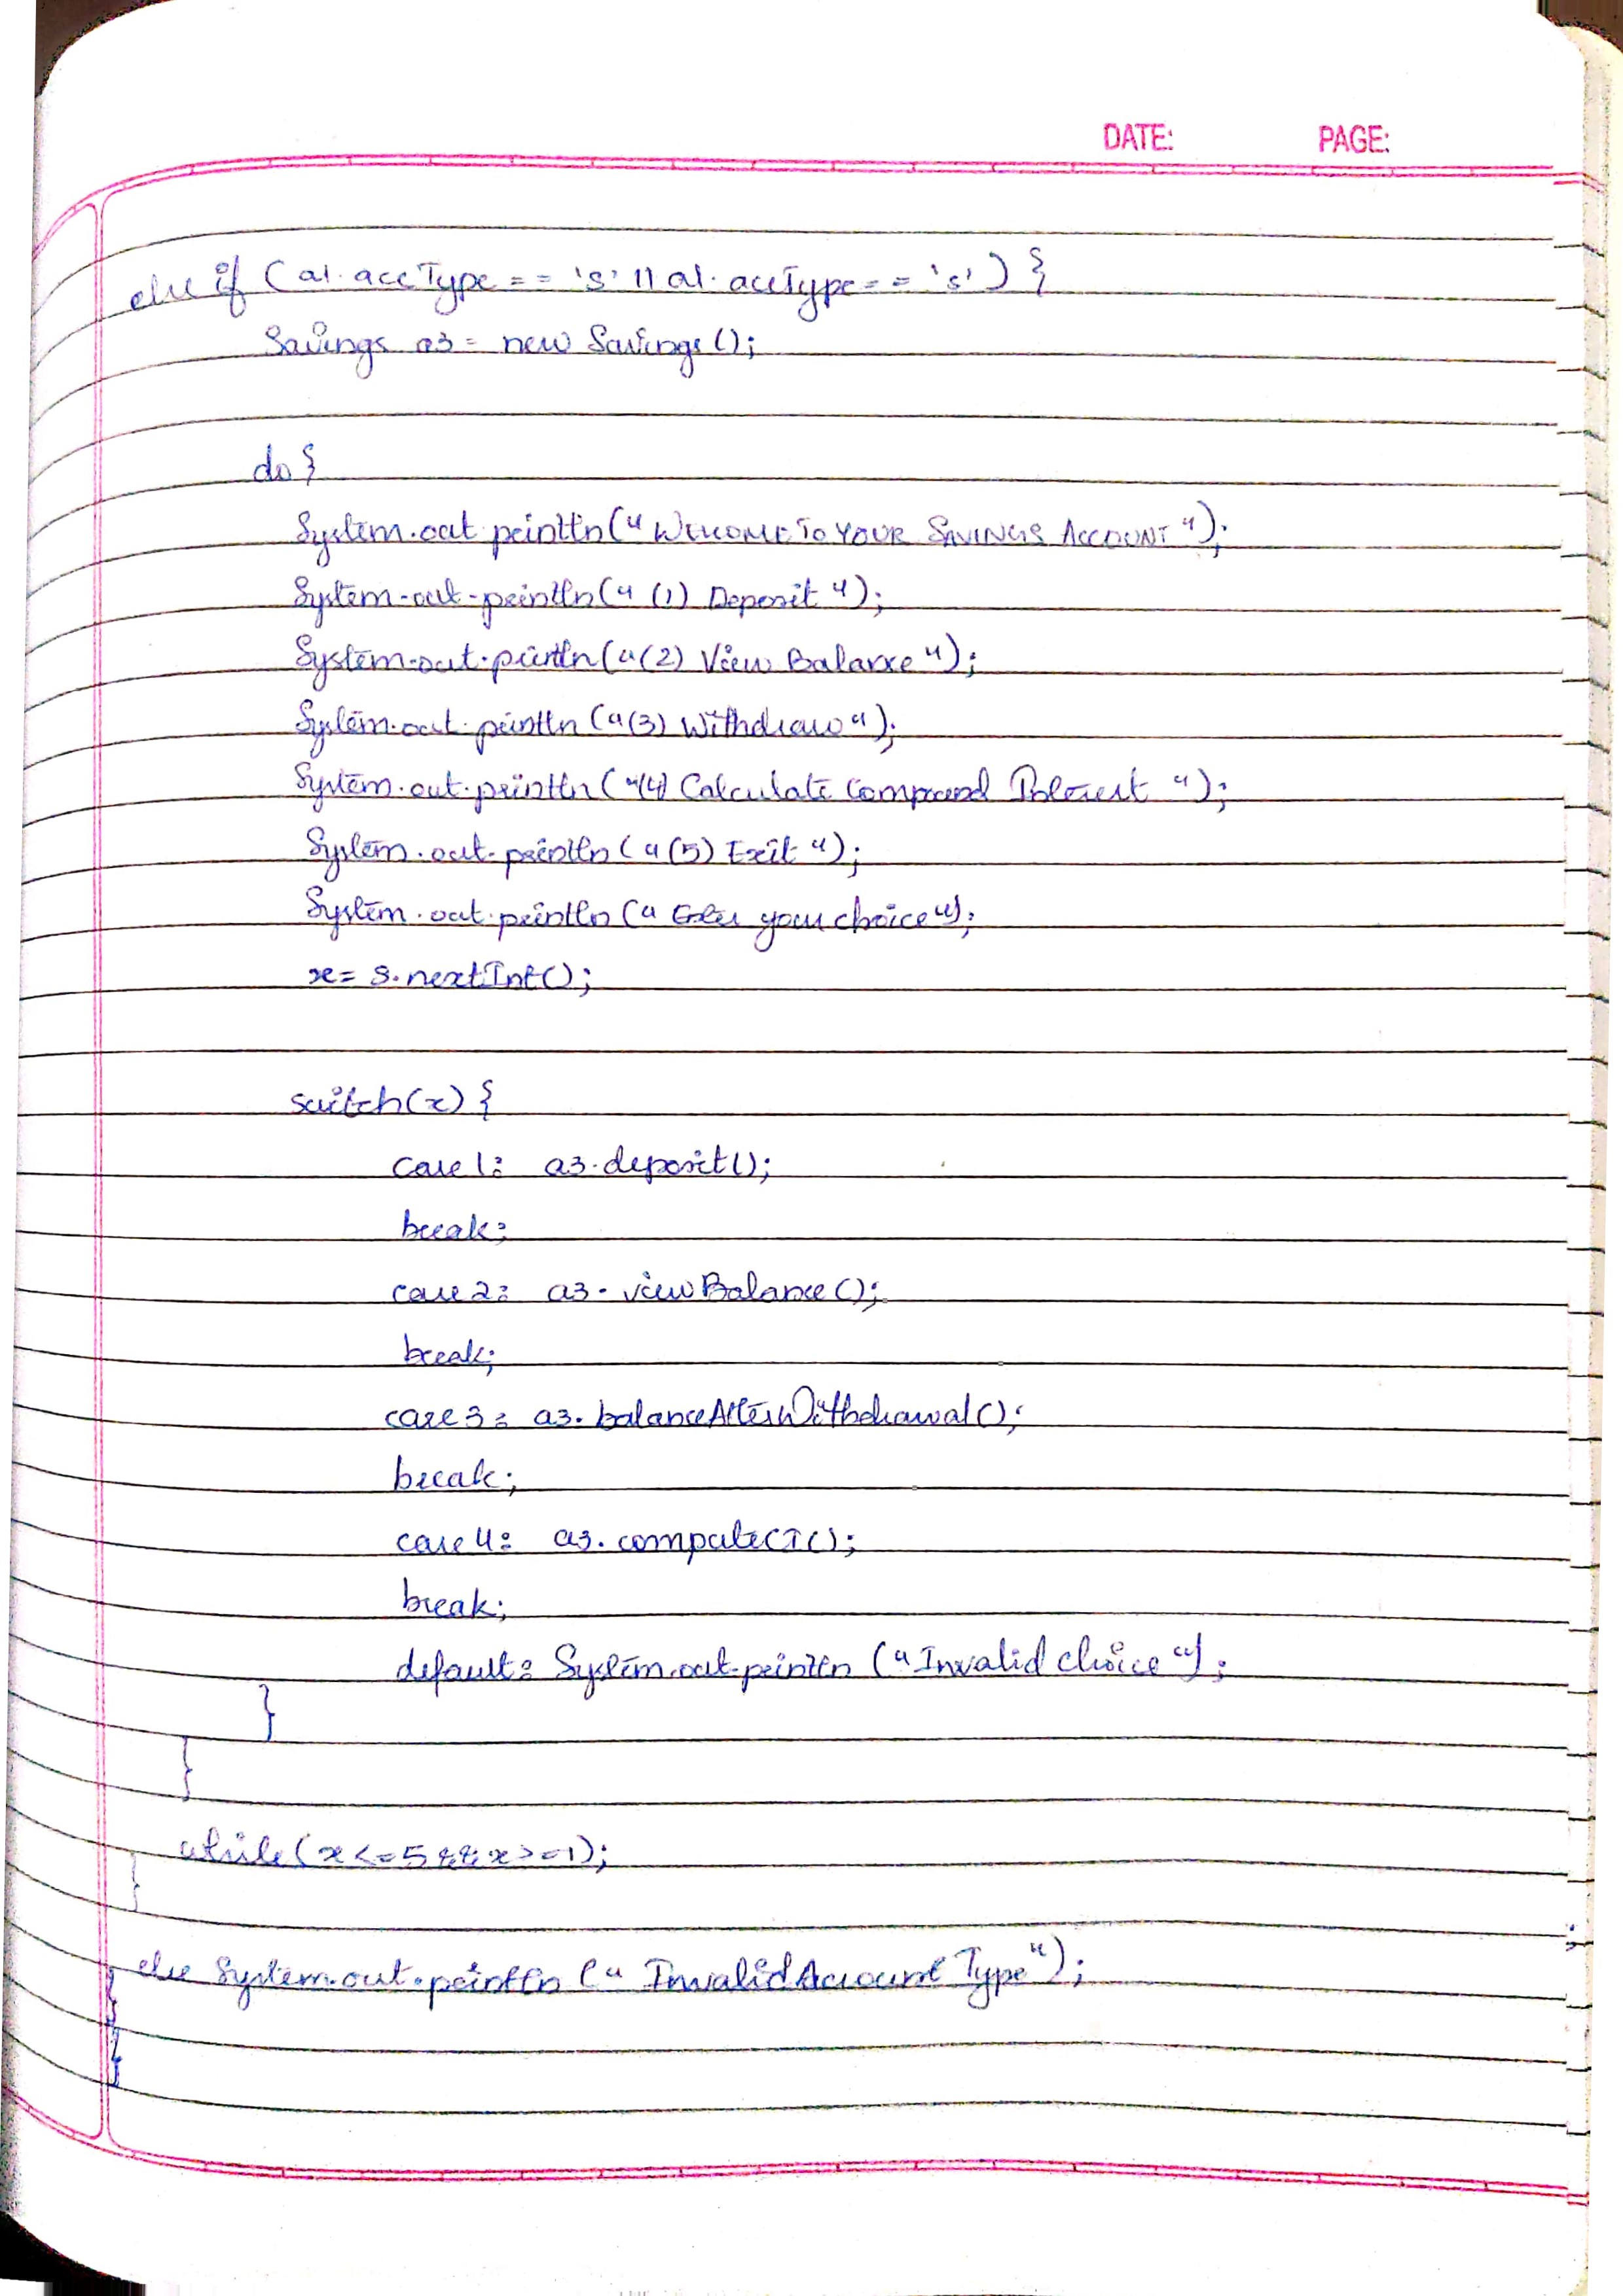 DATE: PAGE:
else if (a1.accType == 's' || a1.accType == 's') {
Savings a3 = new Savings();
do {
System.out.println("WELCOME TO YOUR SAVINGS ACCOUNT");
System.out.println("(1) Deposit");
System.out.println("(2) View Balance");
System.out.println("(3) Withdraw");
System.out.println("(4) Calculate Compound Interest");
System.out.println("(5) Exit");
System.out.println("Enter your choice");
x = s.nextInt();
switch(x) {
case 1: a3.deposit();
break;
case 2: a3.viewBalance();
break;
case 3: a3.balanceAfterWithdrawal();
break;
case 4: a3.computeCI();
break;
default: System.out.println("Invalid choice");
}
}
while(x<=5 && x>=1);
}
else System.out.println("Invalid Account Type");
}
}